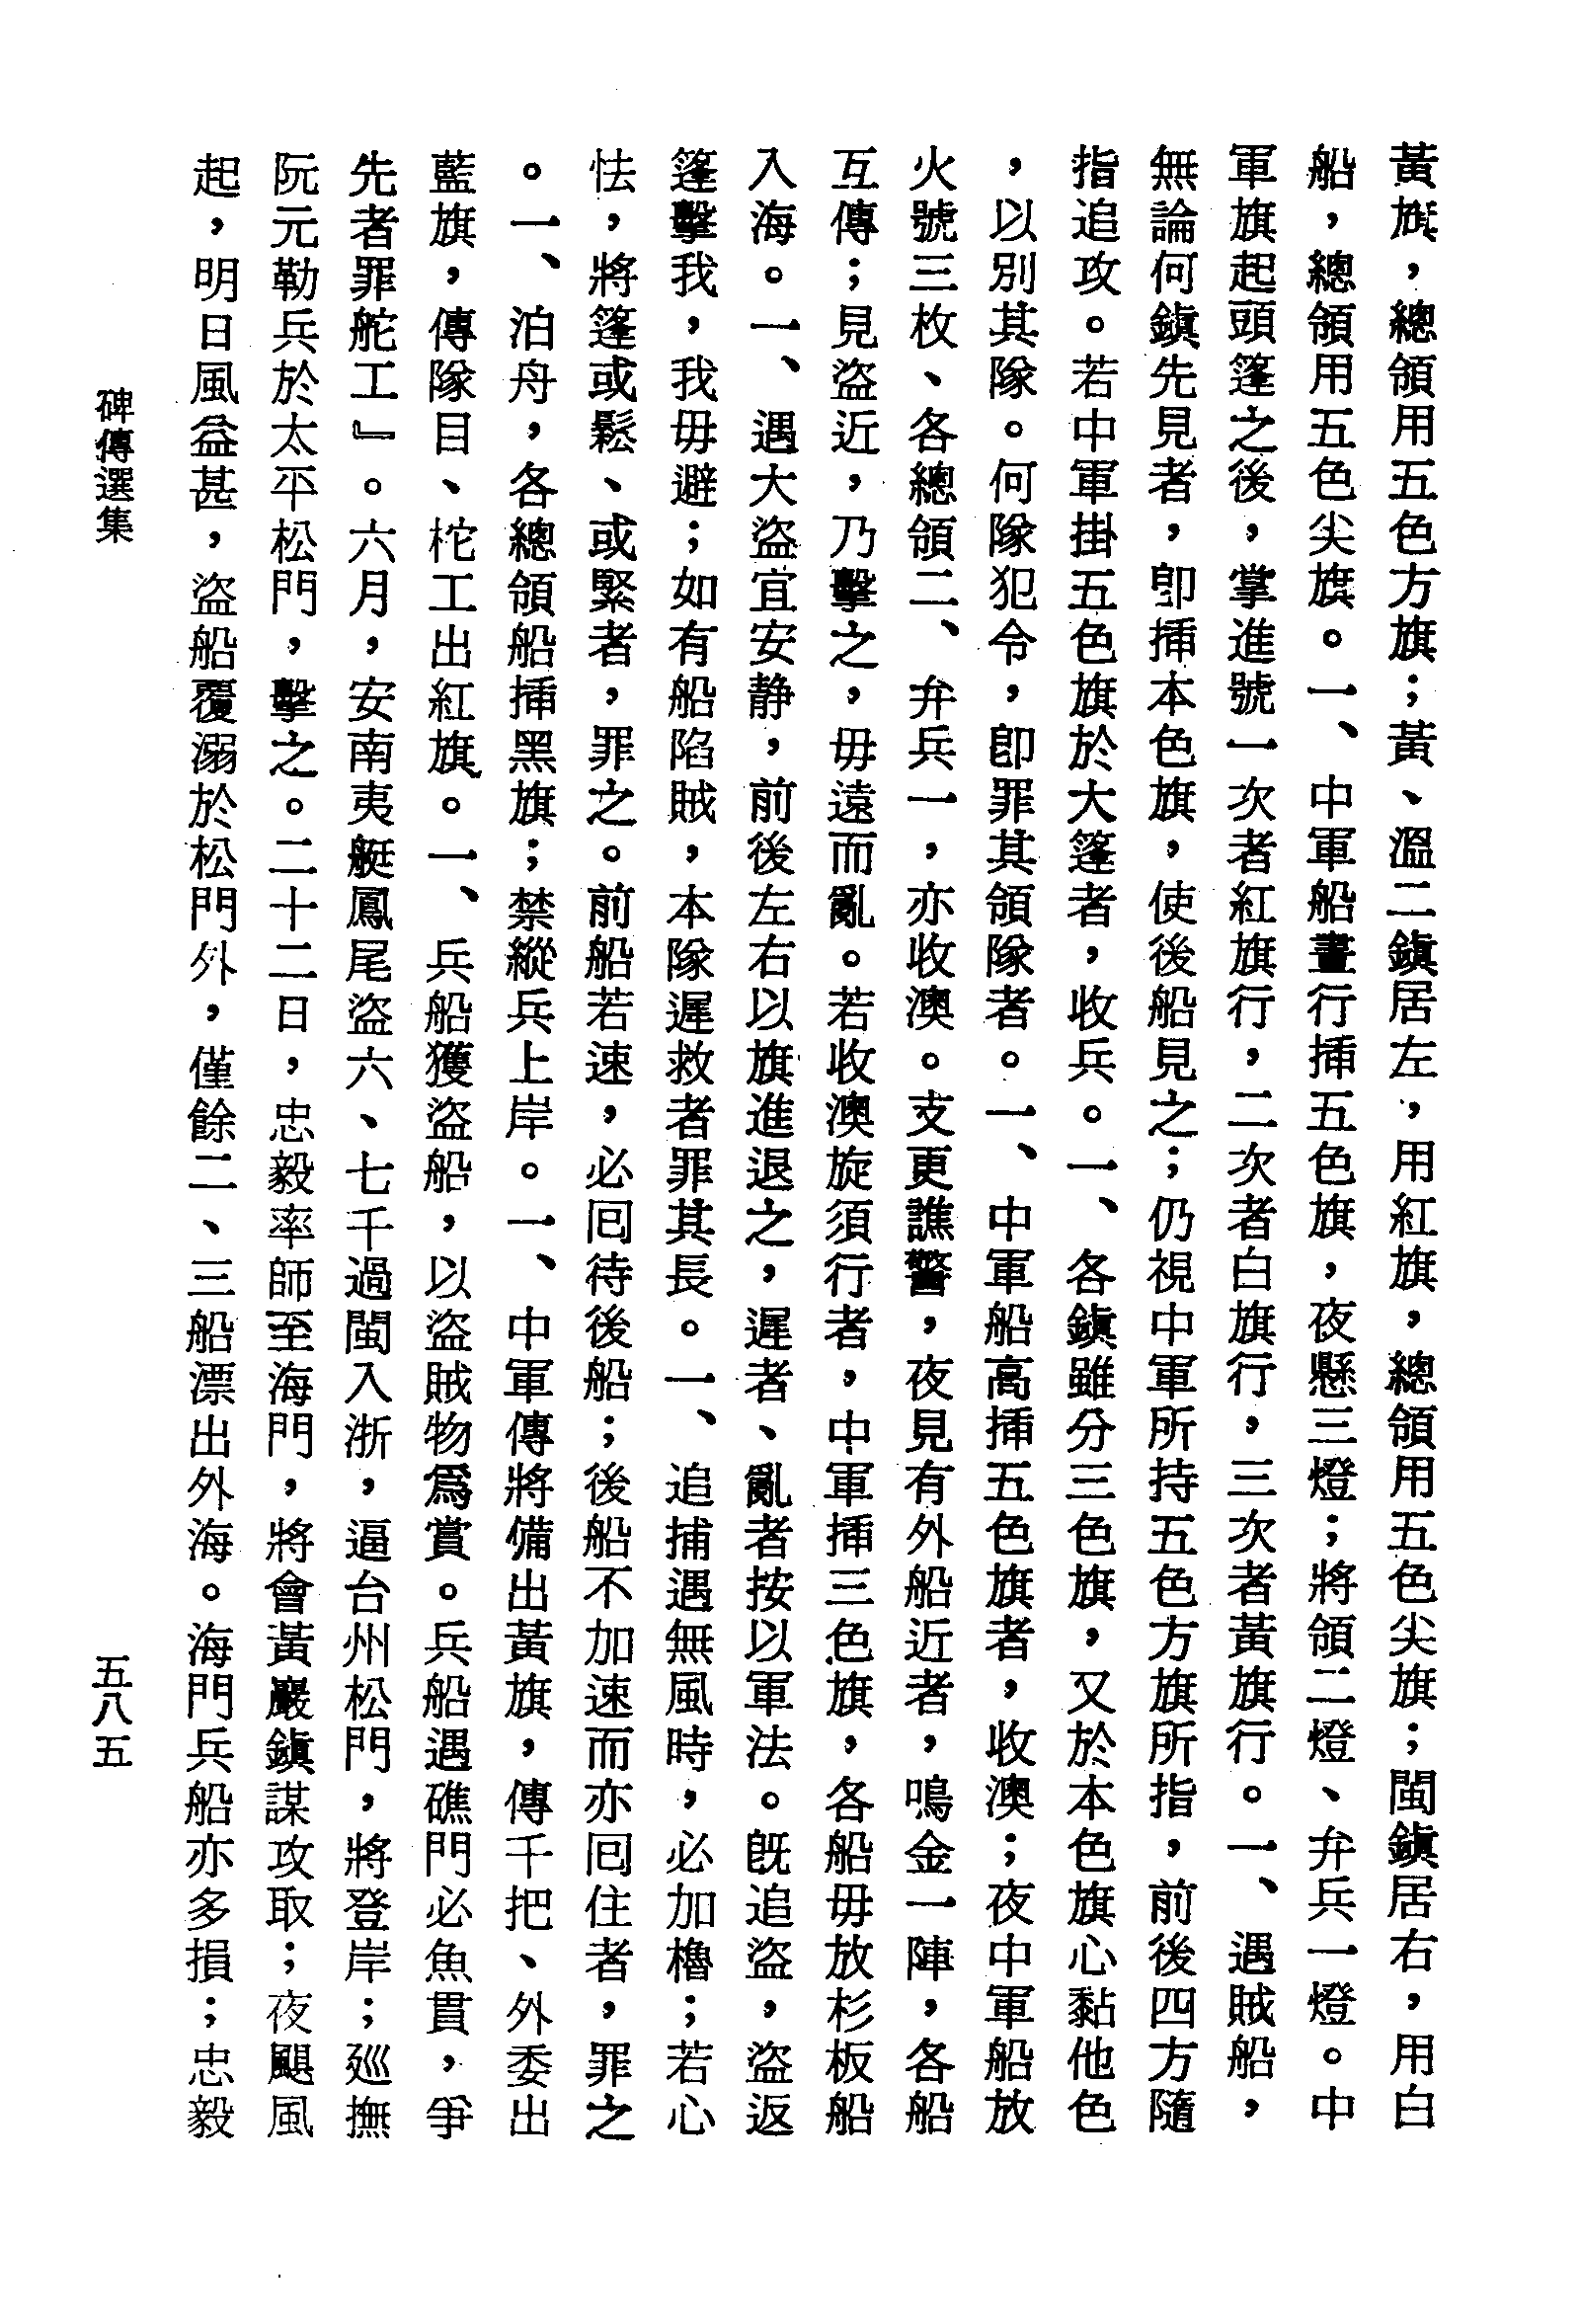 黃旗，總領用五色方旗；黃、溫二鎮居左，用紅旗，總領用五色尖旗；閩鎮居右，用白
船，總領用五色尖旗。一、中軍船晝行揷五色旗，夜懸三燈；將領二燈、弁兵一燈。中
軍旗起頭篷之後，掌進號一次者紅旗行，二次者白旗行，三次者黃旗行。一、遇賊船，
無論何鎮先見者，卽揷本色旗，使後船見之；仍視中軍所持五色方旗所指，前後四方隨
指追攻。若中軍掛五色旗於大篷者，收兵。一、各鎮雖分三色旗，又於本色旗心黏他色
，以別其隊。何隊犯令，卽罪其領隊者。一、中軍船高揷五色旗者，收澳；夜中軍船放
火號三枚、各總領二、弁兵一，亦收澳。支更譙警，夜見有外船近者，鳴金一陣，各船
互傳；見盜近，乃擊之，毋遠而亂。若收澳旋須行者，中軍揷三色旗，各船毋放杉板船
入海。一、遇大盜宜安靜，前後左右以旗進退之，遲者、亂者按以軍法。旣追盜，盜返
篷擊我，我毋避；如有船陷賊，本隊遲救者罪其長。一、追捕遇無風時，必加櫓；若心
怯，將篷或鬆、或緊者，罪之。前船若速，必囘待後船；後船不加速而亦囘住者，罪之
。一、泊舟，各總領船揷黑旗；禁縱兵上岸。一、中軍傳將備出黃旗，傳千把、外委出
藍旗，傳隊目、柁工出紅旗。一、兵船獲盜船，以盜賊物爲賞。兵船遇礁門必魚貫，爭
先者罪舵工』。六月，安南夷艇鳳尾盜六、七千過閩入浙，逼台州松門，將登岸；廵撫
阮元勒兵於太平松門，擊之。二十二日，忠毅率師至海門，將會黃巖鎮謀攻取；夜颶風
起，明日風益甚，盜船覆溺於松門外，僅餘二、三船漂出外海。海門兵船亦多損；忠毅
碑傳選集
五八五